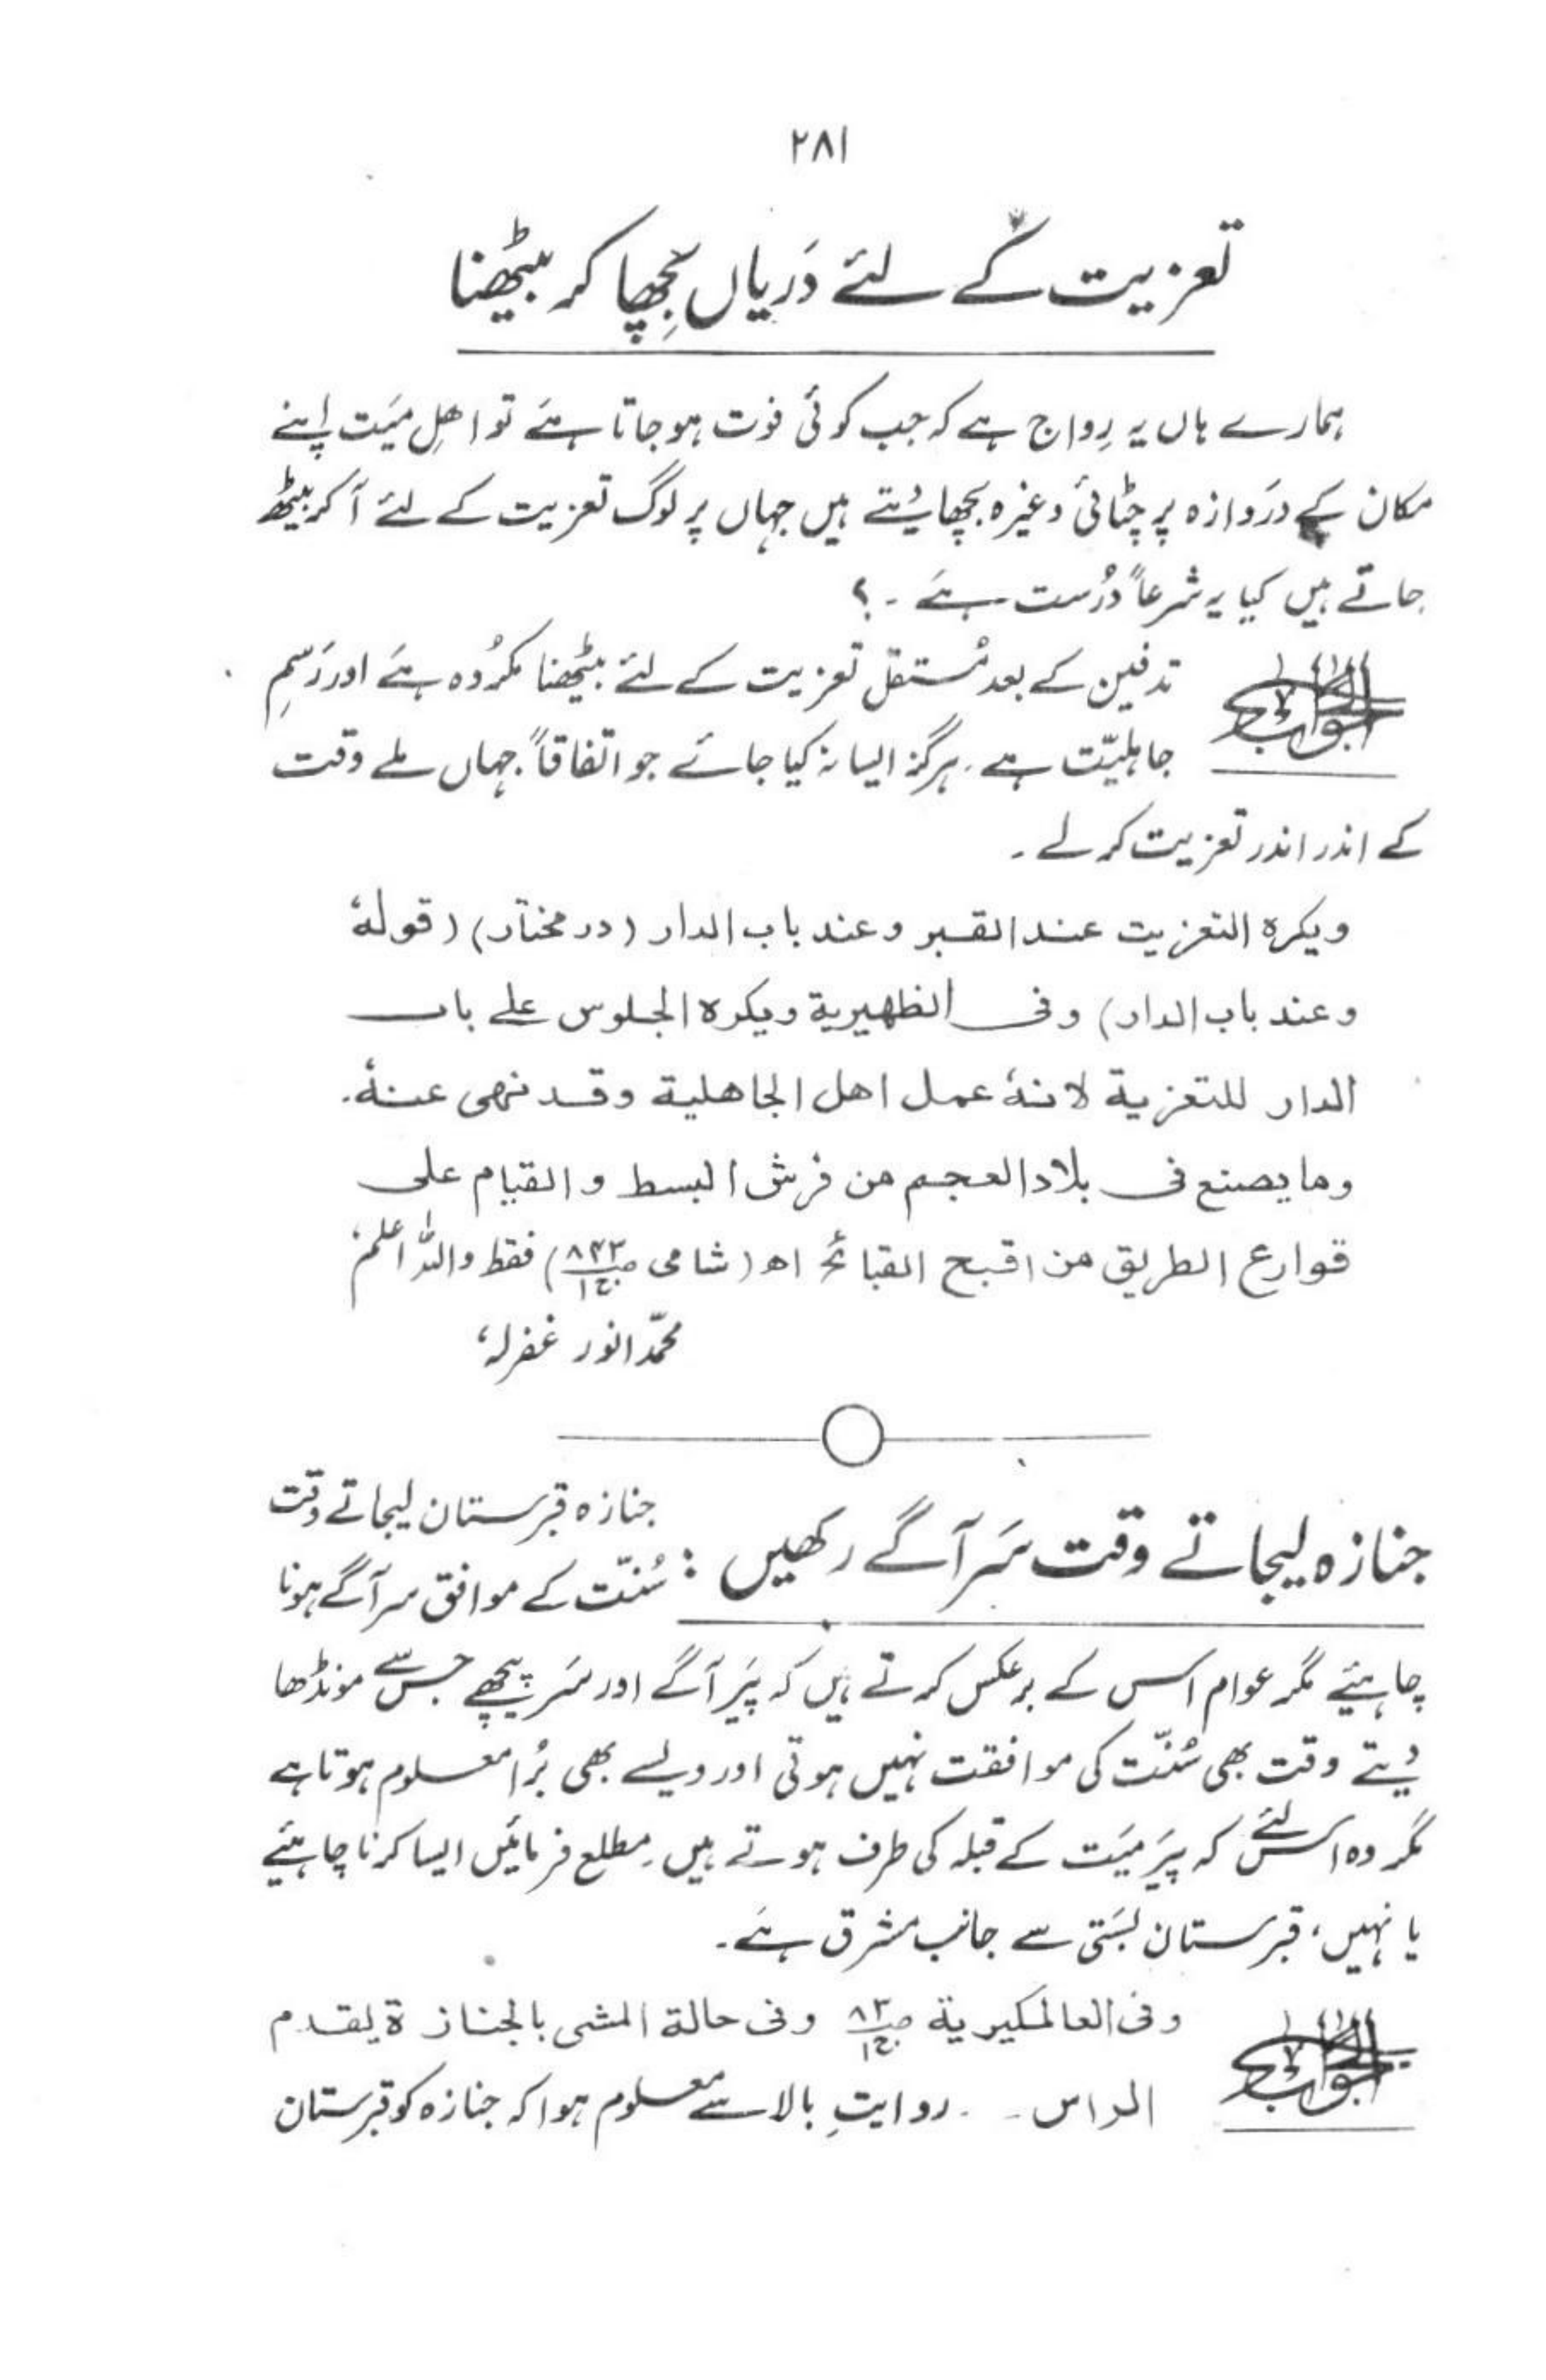 ۲۸۱
تعزیت کے لئے دَریاں بِچھا کر بیٹھنا
ہمارے ہاں یہ رِواج ہے کہ جب کوئی فوت ہو جاتا ہے تو اھلِ میّت اپنے
مکان کے دَروازہ پر چٹائی وغیرہ بچھا دیتے ہیں جہاں پر لوگ تعزیت کے لئے آکر بیٹھ
جاتے ہیں کیا یہ شرعاً دُرست ہے ۔ ؟
الجواب تدفین کے بعد مُستقل تعزیت کے لئے بیٹھنا مکرُوہ ہے اور رَسمِ
جاہلیّت ہے ۔ ہرگز ایسا نہ کیا جائے جو اتفاقاً جہاں ملے وقت
کے اندر اندر تعزیت کر لے ۔
ویکرہ التعزیت عند القبر وعند باب الدار (در مختار) (قولہٗ
وعند باب الدار) وفی الظھیریة ویکرہ الجلوس علے باب
الدار للتعزیة لانہٗ عمل اھل الجاھلیة وقد نھی عنہٗ۔
وما یصنع فی بلاد العجم من فرش البسط والقیام علی
قوارع الطریق من اقبح القبائح اھ (شامی ص۸۴۳ ج۱) فقط واللہ اعلم
محمّد انور غفرلہٗ
جنازہ لیجاتے وقت سَر آگے رکھیں : جنازہ قبرستان لیجاتے وقت
سُنّت کے موافق سر آگے ہونا
چاہیئے مگر عوام اس کے برعکس کرتے ہیں کہ پَیر آگے اور سَر پیچھے جس سے مونڈھا
دیتے وقت بھی سُنّت کی موافقت نہیں ہوتی اور ویسے بھی بُرا معلوم ہوتا ہے
مگر وہ اس لئے کہ پَیر میّت کے قبلہ کی طرف ہوتے ہیں ۔ مطلع فرمائیں ایسا کرنا چاہیئے
یا نہیں، قبرستان بستی سے جانب مشرق ہے۔
الجواب وفی العالمکیریة ص۸۳ ج۱ وفی حالة المشی بالجنازة یقدم
الراس ۔ ۔ روایتِ بالا سے معلوم ہوا کہ جنازہ کو قبرستان